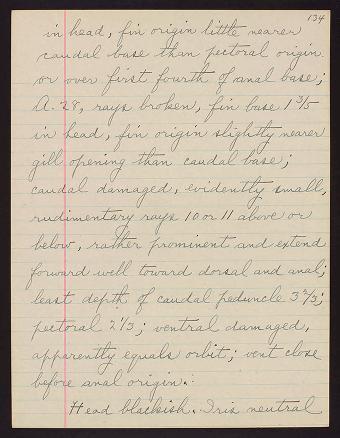 134
in head, fin origin little nearer
caudal base than pectoral origin
or over first fourth of anal base;
A. 28, rays broken, fin base 1 3/5
in head, fin origin slightly nearer
gill opening than caudal base;
caudal damaged, evidently small,
rudimentary rays 10 or 11 above or
below, rather prominent and extend
forward well toward dorsal and anal;
least depth of caudal peduncle 3 2/3;
pectoral 2 1/3; ventral damaged,
apparently equals orbit; vent close
before anal origin.
Head blackish. Iris neutral